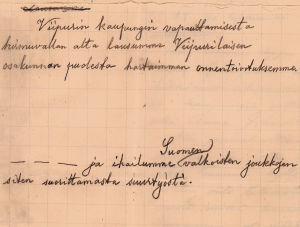 Viipurin kaupungin vapauttamisesta
hirmuvallan alta lausumme Viipurilaisen
osakunnan puolesta hartaimman onnentoivotuksemme
Suomen
— — — ja ihailumme valkoisten joukkojen
siten suorittamasta suurtyöstä.